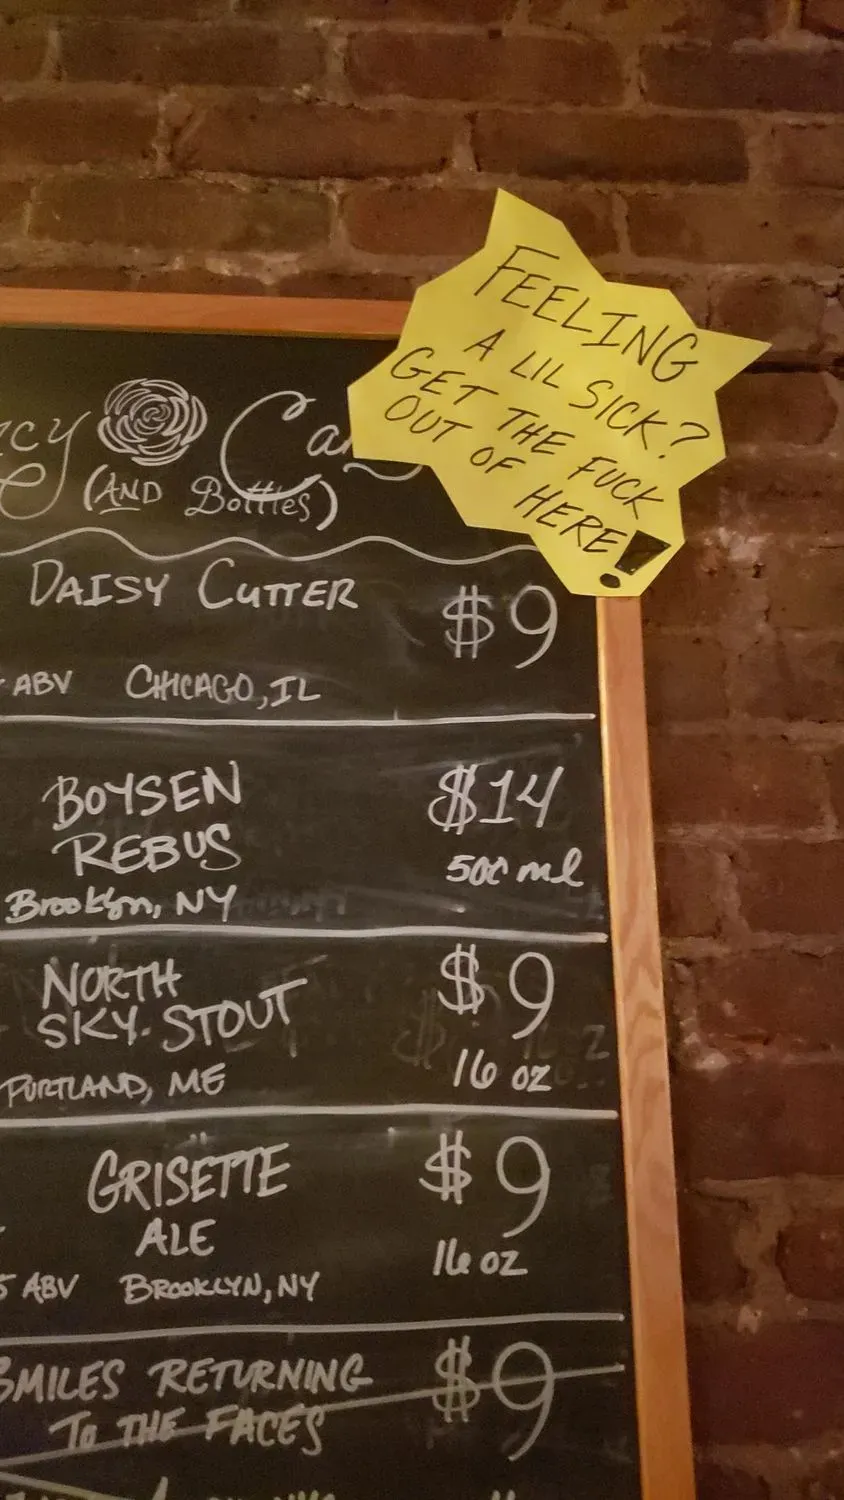 FEELING
A LIL SICK?
GET THE FUCK
OUT OF HERE!
(AND Bottles)
DAISY CUTTER $9
ABV CHICAGO, IL
BOYSEN $14
REBUS 500 ml
Brooklyn, NY
NORTH $9
SKY STOUT
PORTLAND, ME 16 oz
GRISETTE $9
ALE 16 oz
5 ABV BROOKLYN, NY
SMILES RETURNING $9
TO THE FACES